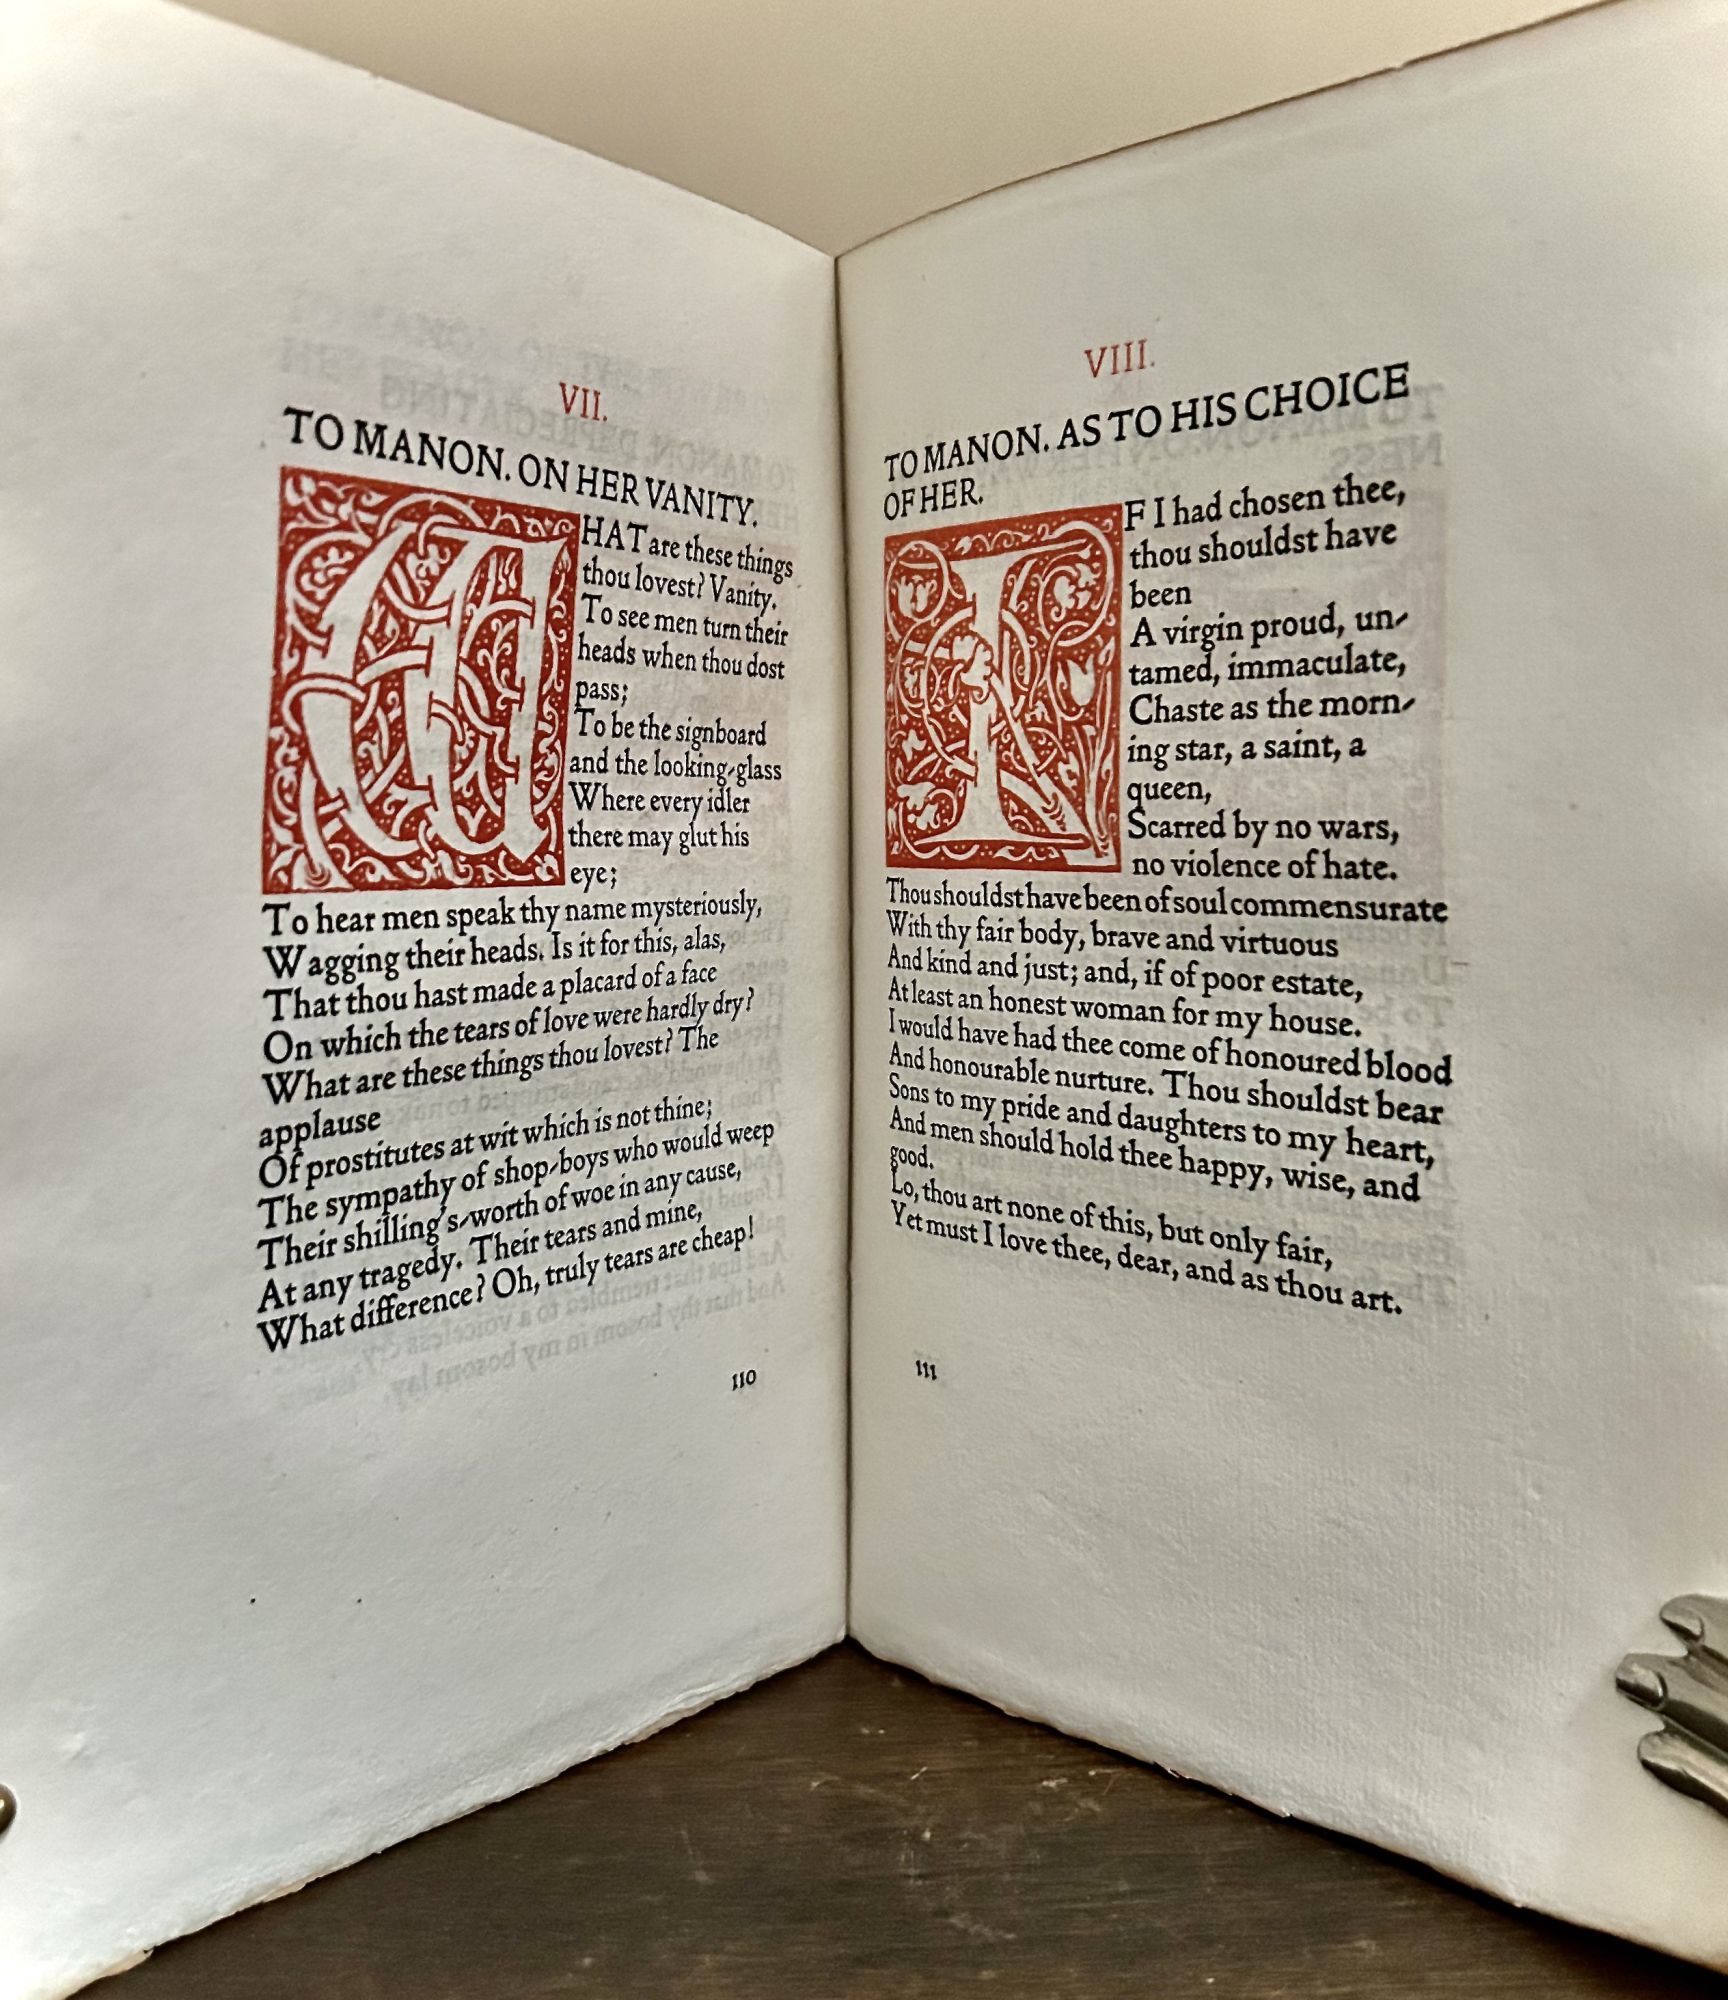 VII.
TO MANON. ON HER VANITY.
WHAT are these things
thou lovest? Vanity.
To see men turn their
heads when thou dost
pass;
To be the signboard
and the looking-glass
Where every idler
there may glut his
eye;
To hear men speak thy name mysteriously,
Wagging their heads. Is it for this, alas,
That thou hast made a placard of a face
On which the tears of love were hardly dry?
What are these things thou lovest? The
applause
Of prostitutes at wit which is not thine;
The sympathy of shop-boys who would weep
Their shilling's-worth of woe in any cause,
At any tragedy. Their tears and mine,
What difference? Oh, truly tears are cheap!
110
VIII.
TO MANON. AS TO HIS CHOICE
OF HER.
IF I had chosen thee,
thou shouldst have
been
A virgin proud, un-
tamed, immaculate,
Chaste as the morn-
ing star, a saint, a
queen,
Scarred by no wars,
no violence of hate.
Thou shouldst have been of soul commensurate
With thy fair body, brave and virtuous
And kind and just; and, if of poor estate,
At least an honest woman for my house.
I would have had thee come of honoured blood
And honourable nurture. Thou shouldst bear
Sons to my pride and daughters to my heart,
And men should hold thee happy, wise, and
good.
Lo, thou art none of this, but only fair,
Yet must I love thee, dear, and as thou art.
111